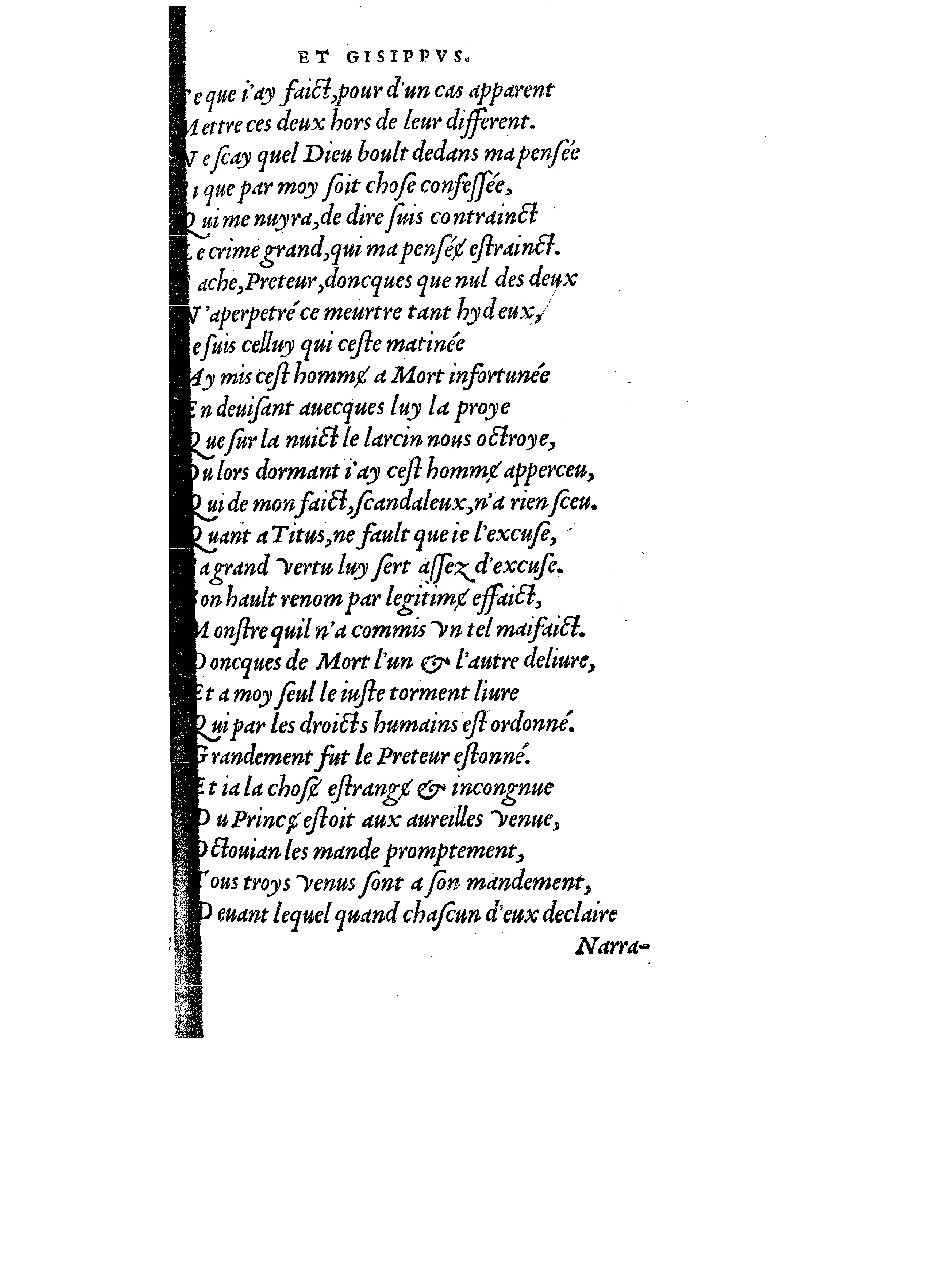 ET GISIPPVS.
Ce que i'ay faict,pour d'un cas apparent
Mettre ces deux hors de leur different.
Ne ſcay quel Dieu boult dedans ma penſée
Si que par moy ſoit choſe confeſſée,
Qui me nuyra,de dire ſuis contrainct
Le crime grand,qui ma penſéɇ eſtrainct.
Sache,Preteur,doncques que nul des deux
N'a perpetré ce meurtre tant hydeux,
Ie ſuis celluy qui ceſte matinée
Ay mis ceſt hommɇ a Mort infortunée
En deuiſant auecques luy la proye
Que ſur la nuict le larcin nous octroye,
Ou lors dormant i'ay ceſt hommɇ apperceu,
Qui de mon faict,ſcandaleux,n'a rien ſceu.
Quant a Titus,ne fault que ie l'excuſe,
Sa grand vertu luy ſert aſſez d'excuſe.
Son hault renom par legitimɇ effaict,
Monſtre quil n'a commis vn tel maifaict.
Doncques de Mort l'un & l'autre deliure,
Et a moy ſeul le iuſte torment liure
Qui par les droicts humains eſt ordonné.
Grandement fut le Preteur eſtonné.
Et ia la choſɇ eſtrangɇ & incongnue
Du Princɇ eſtoit aux aureilles venue,
Octouian les mande promptement,
Tous troys venus ſont a ſon mandement,
Deuant lequel quand chaſcun d'eux declaire
Narra-